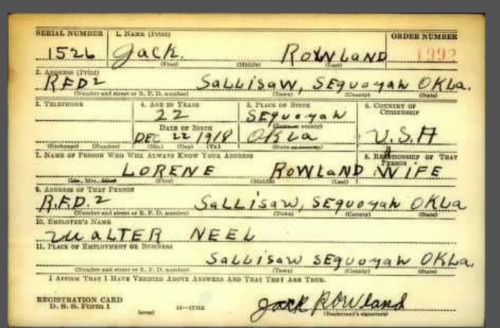 SERIAL NUMBER 1. NAME (Print) ORDER NUMBER
1526 Jack. ROWLAND 1992
(First) (Middle) (Last)
2. ADDRESS (Print)
R.F.D 2 SALLISAW, SEQUOYAH OKLA.
(Number and street or R. F. D. number) (Town) (County) (State)
3. TELEPHONE 4. AGE IN YEARS 5. PLACE OF BIRTH 6. COUNTRY OF CITIZENSHIP
22 SEQUOYAH
DATE OF BIRTH
DEC 22 1918 OKLA U.S.A
(Exchange) (Number) (Mo.) (Day) (Yr.) (State or country)
7. NAME OF PERSON WHO WILL ALWAYS KNOW YOUR ADDRESS 8. RELATIONSHIP OF THAT PERSON
LORENE ROWLAND WIFE
(First) (Middle) (Last)
9. ADDRESS OF THAT PERSON
R.F.D. 2 SALLISAW, SEQUOYAH OKLA
(Number and street or R. F. D. number) (Town) (County) (State)
10. EMPLOYER'S NAME
WALTER NEEL
11. PLACE OF EMPLOYMENT OR BUSINESS
SALLISAW SEQUOYAH OKLA.
(Number and street or R. F. D. number) (Town) (County) (State)
I AFFIRM THAT I HAVE VERIFIED ABOVE ANSWERS AND THAT THEY ARE TRUE.
REGISTRATION CARD
D. S. S. Form 1 (over) Jack Rowland
(Registrant's signature)